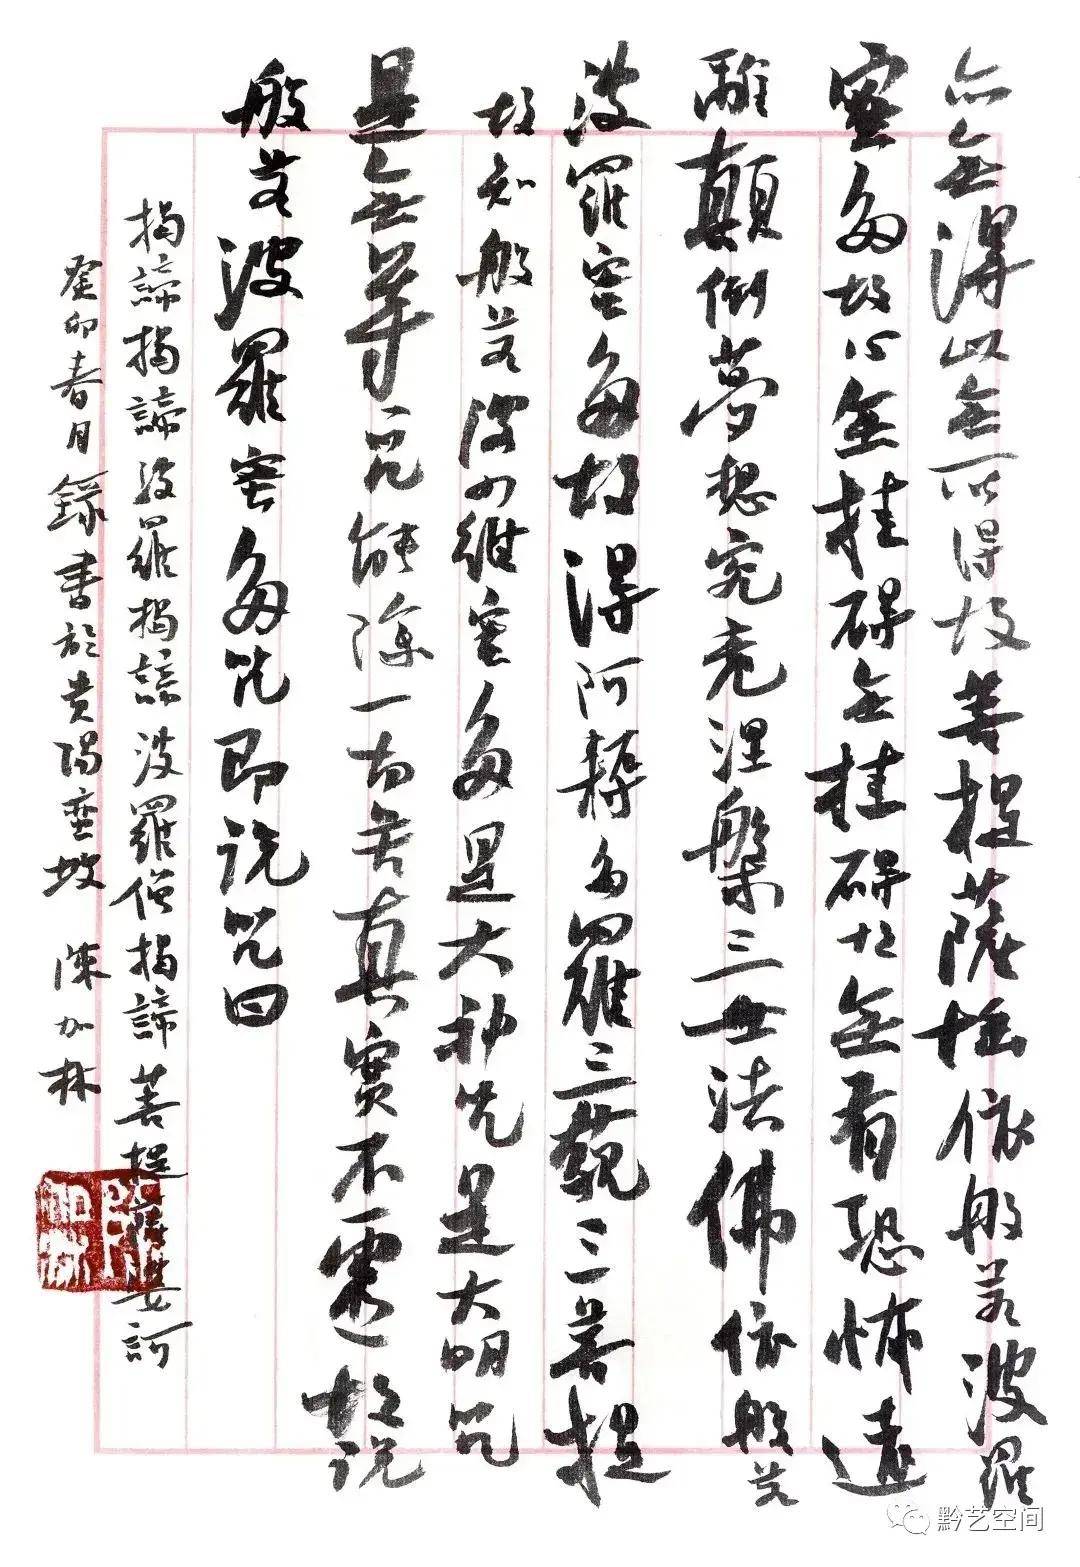 亦無得以無所得故菩提薩埵依般若波羅
蜜多故心無挂礙無挂礙故無有恐怖遠
離顛倒夢想究竟涅槃三世法佛依般若
波羅蜜多故得阿耨多羅三藐三菩提
故知般若波羅蜜多是大神咒是大明咒
是無等咒能除一切苦真實不虛故説
般若波羅蜜多咒即説咒曰
揭諦揭諦波羅揭諦波羅僧揭諦菩提薩婆訶
癸卯春月錄書於貴陽蛮坡 陳加林
黔艺空间